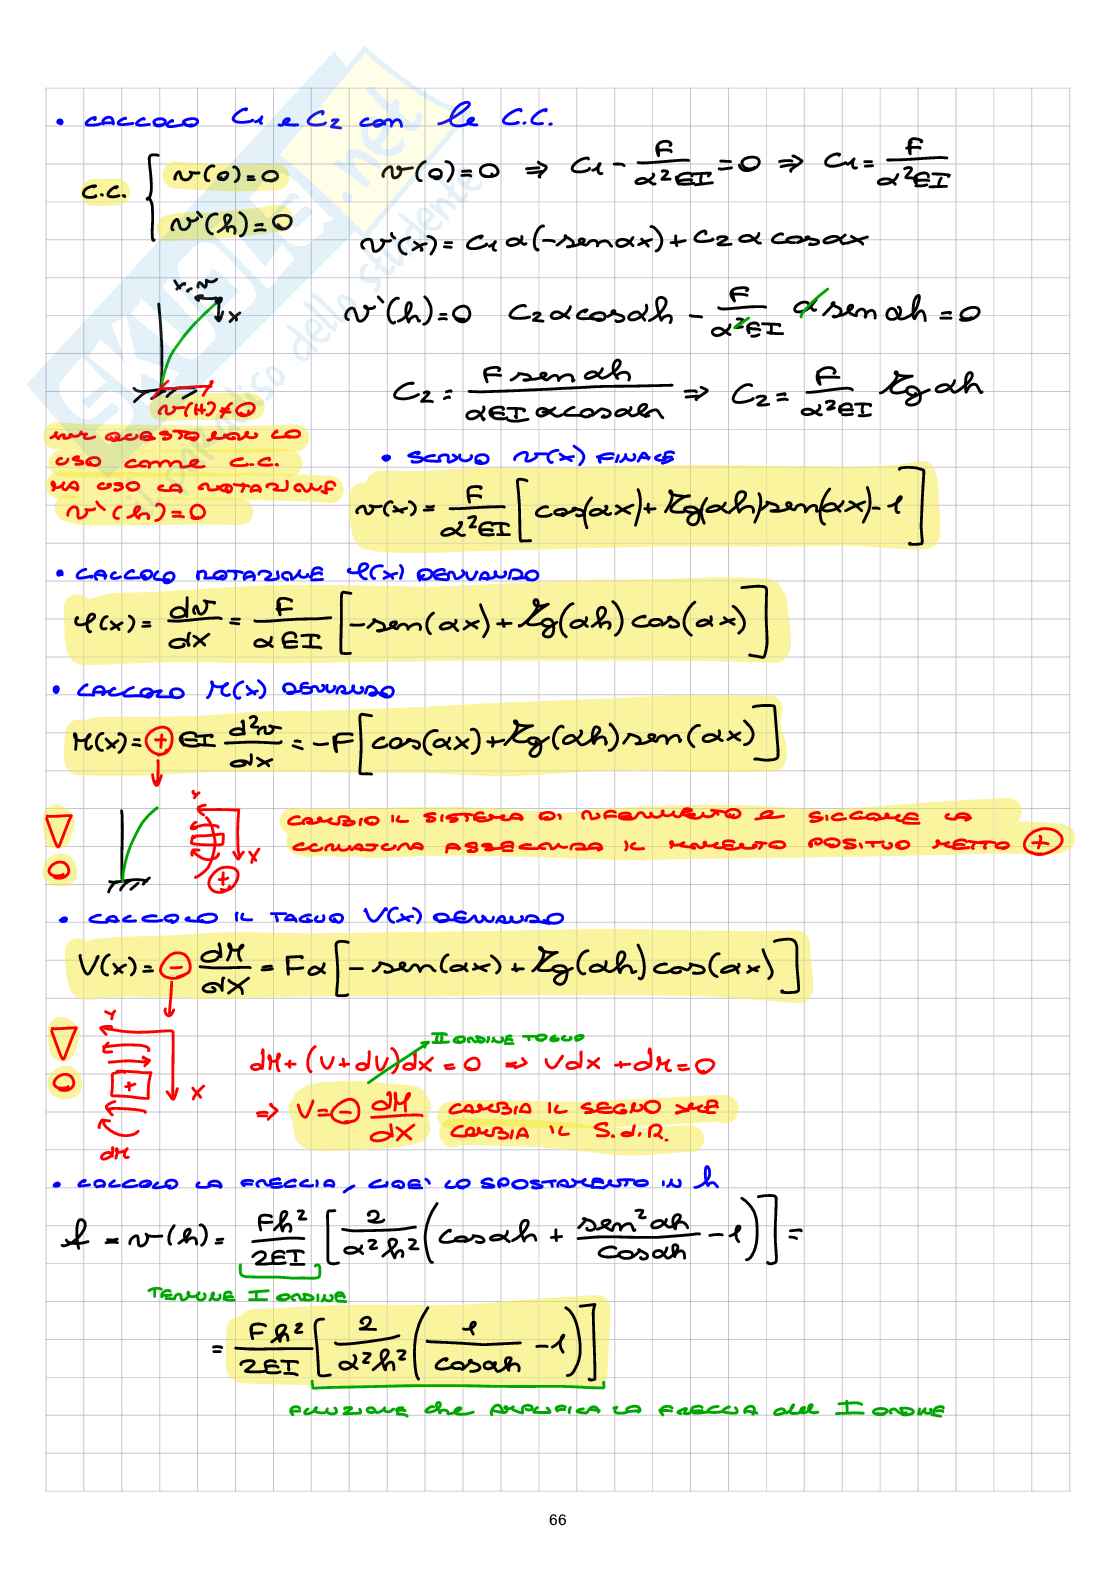 • CALCOLO C1 e C2 con le C.C.
C.C. { v(0)=0
v'(h)=0
v(0)=0 ⇒ C1 - F/(α²EI) = 0 ⇒ C1 = F/(α²EI)
v'(x) = C1 α(-sen αx) + C2 α cos αx
v'(h)=0 C2 α cos αh - F/(α²EI) α sen αh = 0
C2 = F sen αh/(αEI αcos αh) ⇒ C2 = F/(α²EI) tg αh
Y, v
X
v(H)≠0
PER QUESTO NON LO
USO come C.C.
MA USO LA ROTAZIONE
v'(h)=0
• SCRIVO v(x) FINALE
v(x) = F/(α²EI) [cos(αx) + tg(αh) sen(αx) - 1]
• CALCOLO ROTAZIONE φ(x) DERIVANDO
φ(x) = dv/dx = F/(αEI) [-sen(αx) + tg(αh) cos(αx)]
• CALCOLO M(x) DERIVANDO
M(x) = + EI d²v/dx = -F [cos(αx) + tg(αh) sen(αx)]
Y
X
+
CAMBIO IL SISTEMA DI RIFERIMENTO e SICCOME LA
CURVATURA ASSECONDA IL MOMENTO POSITIVO METTO +
• CALCOLO IL TAGLIO V(x) DERIVANDO
V(x) = - dM/dX = Fα [-sen(αx) + tg(αh) cos(αx)]
Y
X
+
dM
II ORDINE TOLGO
dM + (V+dV)dx = 0 ⇒ Vdx + dM = 0
⇒ V = - dM/dX CAMBIA IL SEGNO
CAMBIA IL S.d.R.
• CALCOLO LA FRECCIA, CIOE' LO SPOSTAMENTO IN h
f = v(h) = Fh²/2EI [2/(α²h²) (cos αh + sen²αh/cos αh - 1)] =
TERMINE I ORDINE
= Fh²/2EI [2/(α²h²) (1/cos αh - 1)]
FUNZIONE che AMPLIFICA LA FRECCIA del I ORDINE
66
SKUOLA.net